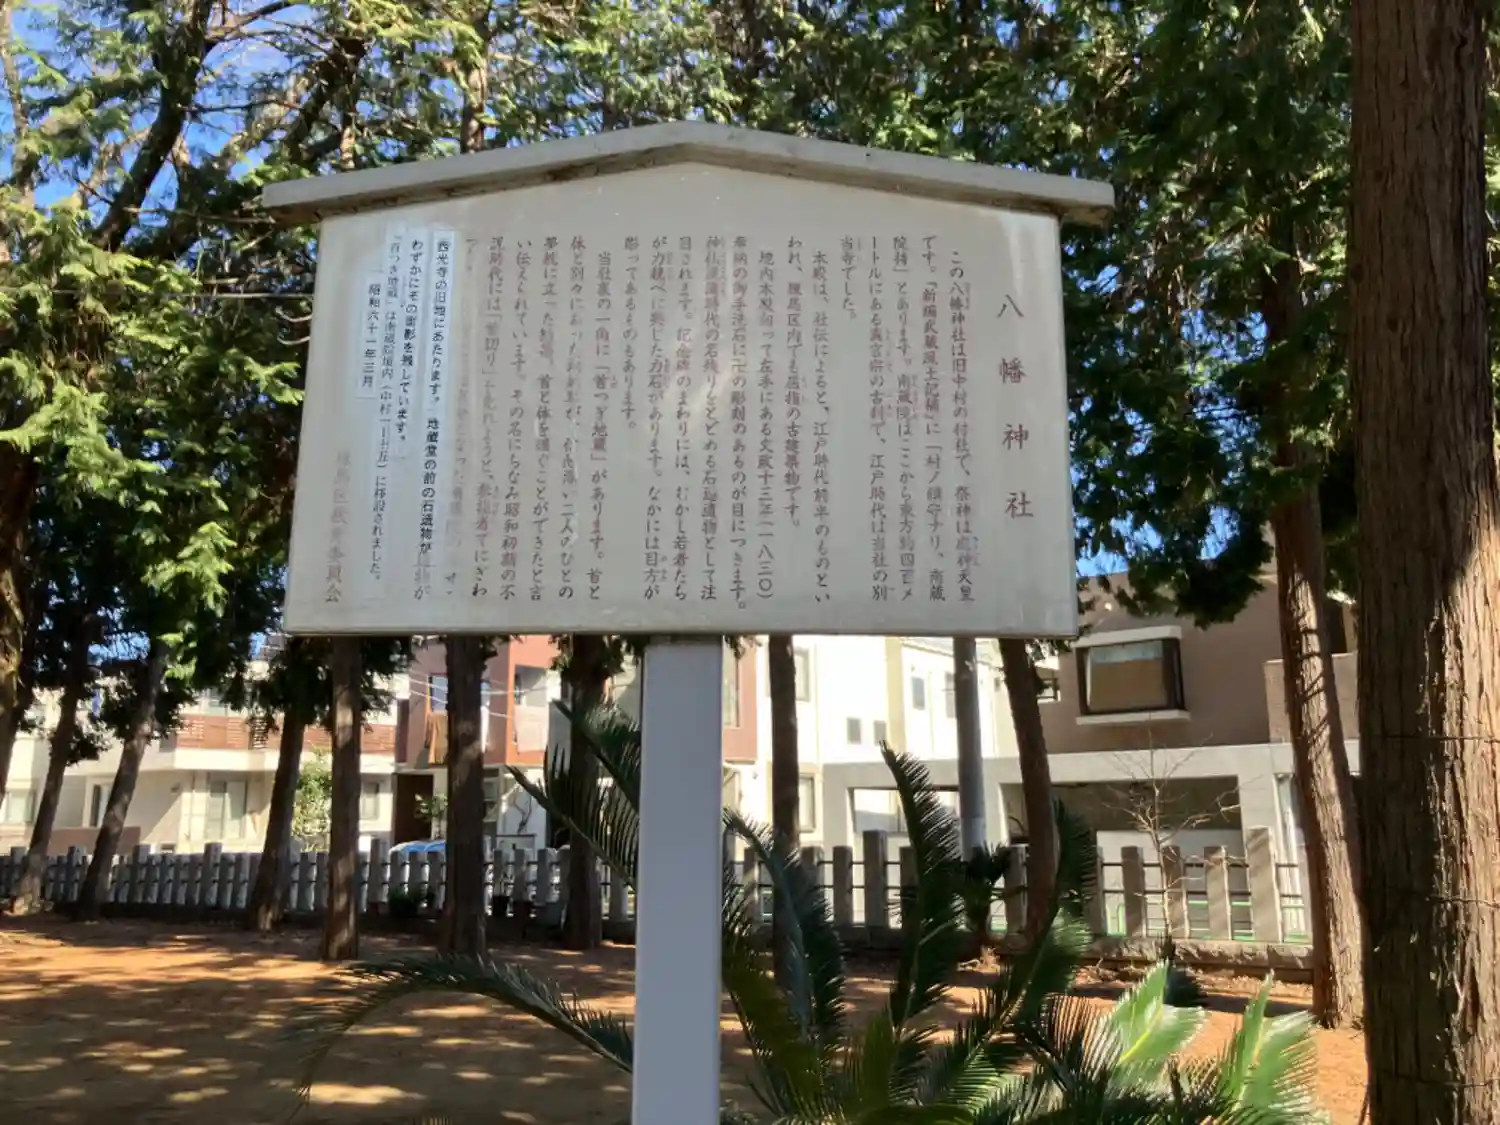 八幡神社
この八幡神社は旧中村の村社で、祭神は應神天皇
です。「新編武蔵風土記稿」に「村ノ鎮守ナリ、南蔵
院持」とあります。南蔵院はここから東方約四百メ
ートルにある真言宗の古刹で、江戸時代は当社の別
当寺でした。
本殿は、社伝によると、江戸時代前半のものとい
われ、練馬区内でも屈指の古建築物です。
境内本殿向って左手にある文政十三年(一八三〇)
奉納の御手洗石に卍の彫刻のあるものが目につきます。
神仏混淆時代の名残りをとどめる石造遺物として注
目されます。記念碑のまわりには、むかし若者たち
が力競べに興じた力石があります。なかには目方が
彫ってあるものもあります。
当社裏の一角に「首つぎ地蔵」があります。首と
体と別々にあった が、 二人のひとの
夢枕に立った結果、首と体を継ぐことができたと言
い伝えられています。その名にちなみ昭和初期の不
況時代には「首切り」を免れようと、参詣者でにぎわ
西光寺の旧地にあたります。地蔵堂の前の石造物が
わずかにその面影を残しています。
「首つぎ地蔵」は南蔵院境内(中村一-十五)に移設されました。
昭和六十一年三月
練馬区教育委員会